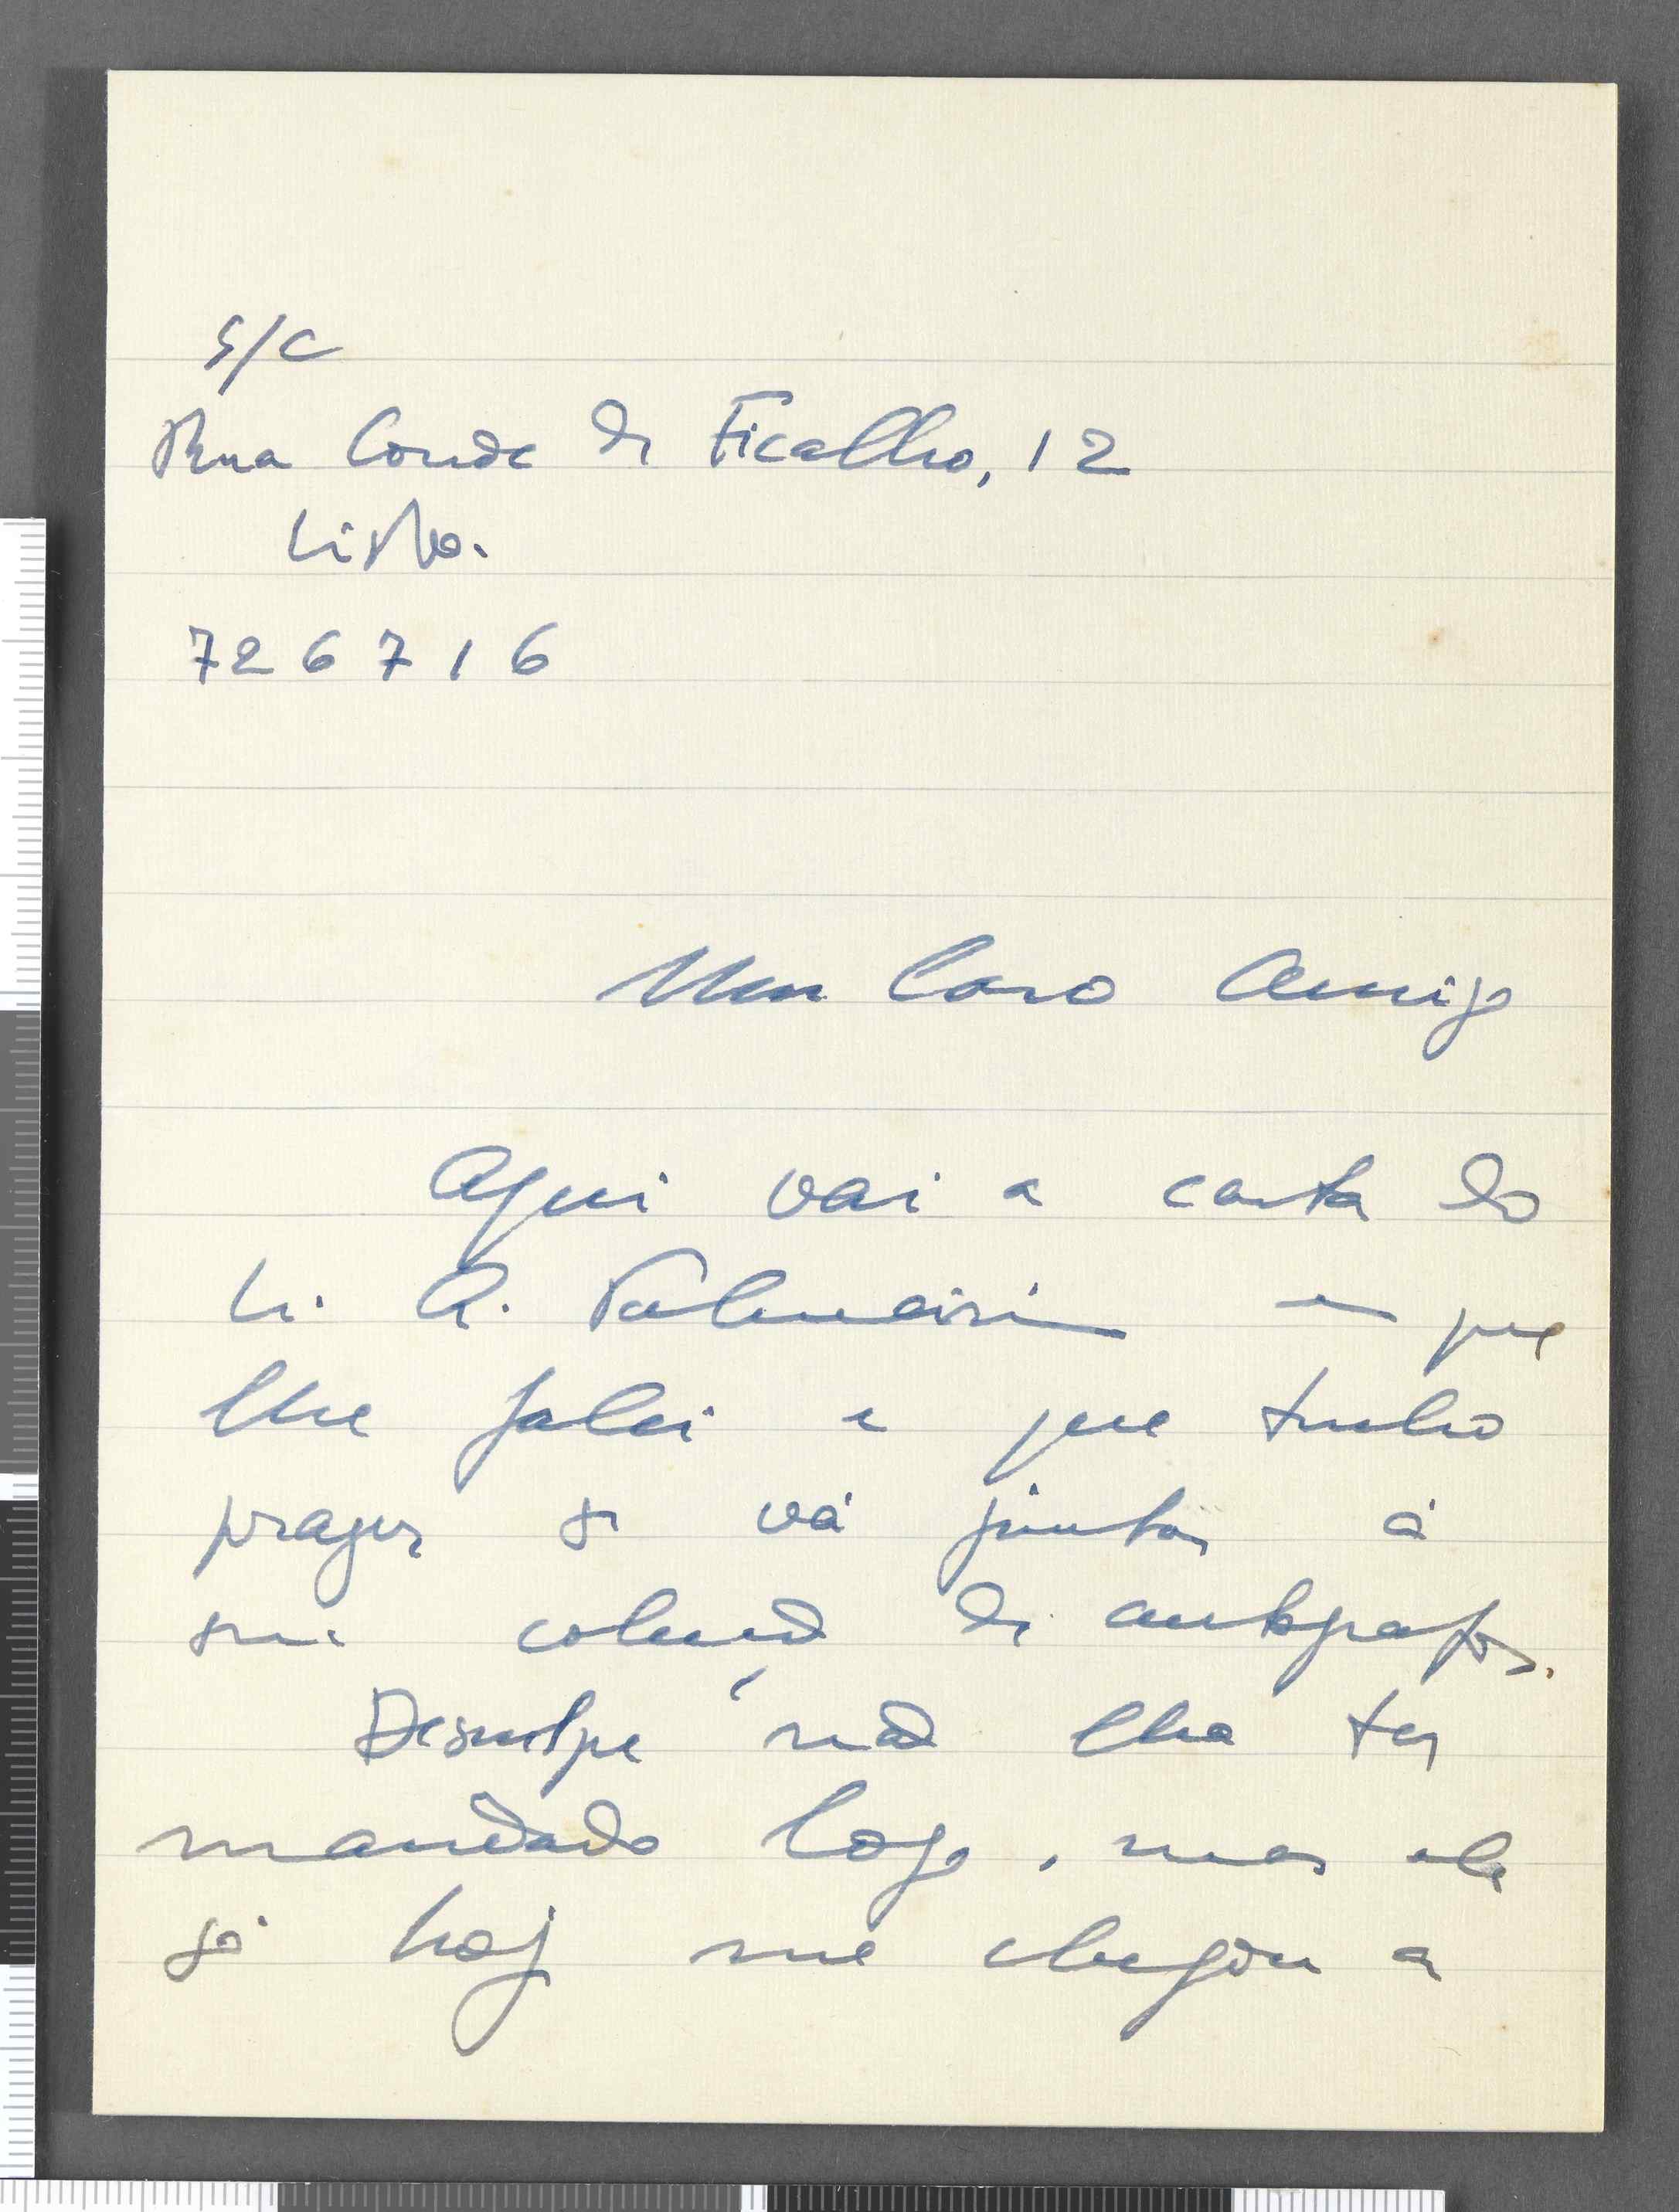 S/C
Rua Conde de Ficalho, 12
Lisboa.
726716
Meu Caro Amigo
Aqui vai a carta do
L. A. Palmeirim em que
lhe falei e que tenho
prazer se vá juntar à
sua colecção de autografos.
Desculpe não lha ter
mandado logo, mas ela
só hoje me chegou a